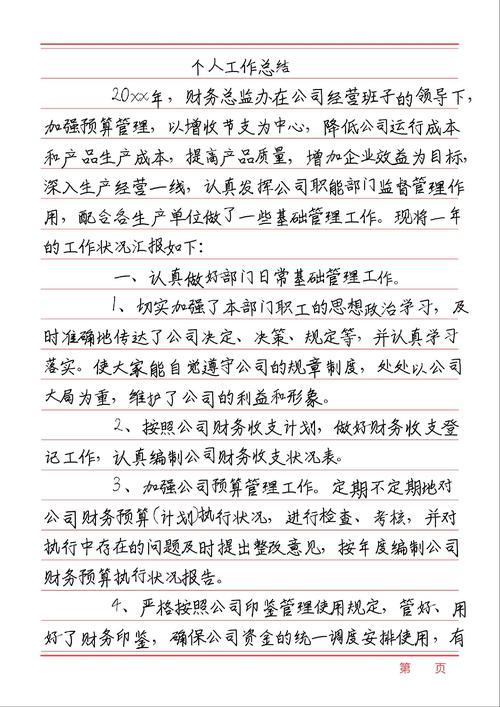 个人工作总结
20xx年，财务总监办在公司经营班子的领导下，
加强预算管理，以增收节支为中心，降低公司运行成本
和产品生产成本，提高产品质量，增加企业效益为目标，
深入生产经营一线，认真发挥公司职能部门监督管理作
用，配合各生产单位做了一些基础管理工作。现将一年
的工作状况汇报如下：
一、认真做好部门日常基础管理工作。
1、切实加强了本部门职工的思想政治学习，及
时准确地传达了公司决定、决策、规定等，并认真学习
落实。使大家能自觉遵守公司的规章制度，处处以公司
大局为重，维护了公司的利益和形象。
2、按照公司财务收支计划，做好财务收支登
记工作，认真编制公司财务收支状况表。
3、加强公司预算管理工作。定期不定期地对
公司财务预算(计划)执行状况，进行检查、考核，并对
执行中存在的问题及时提出整改意见，按年度编制公司
财务预算执行状况报告。
4、严格按照公司印鉴管理使用规定，管好、用
好了财务印鉴，确保公司资金的统一调度安排使用，有
第 页